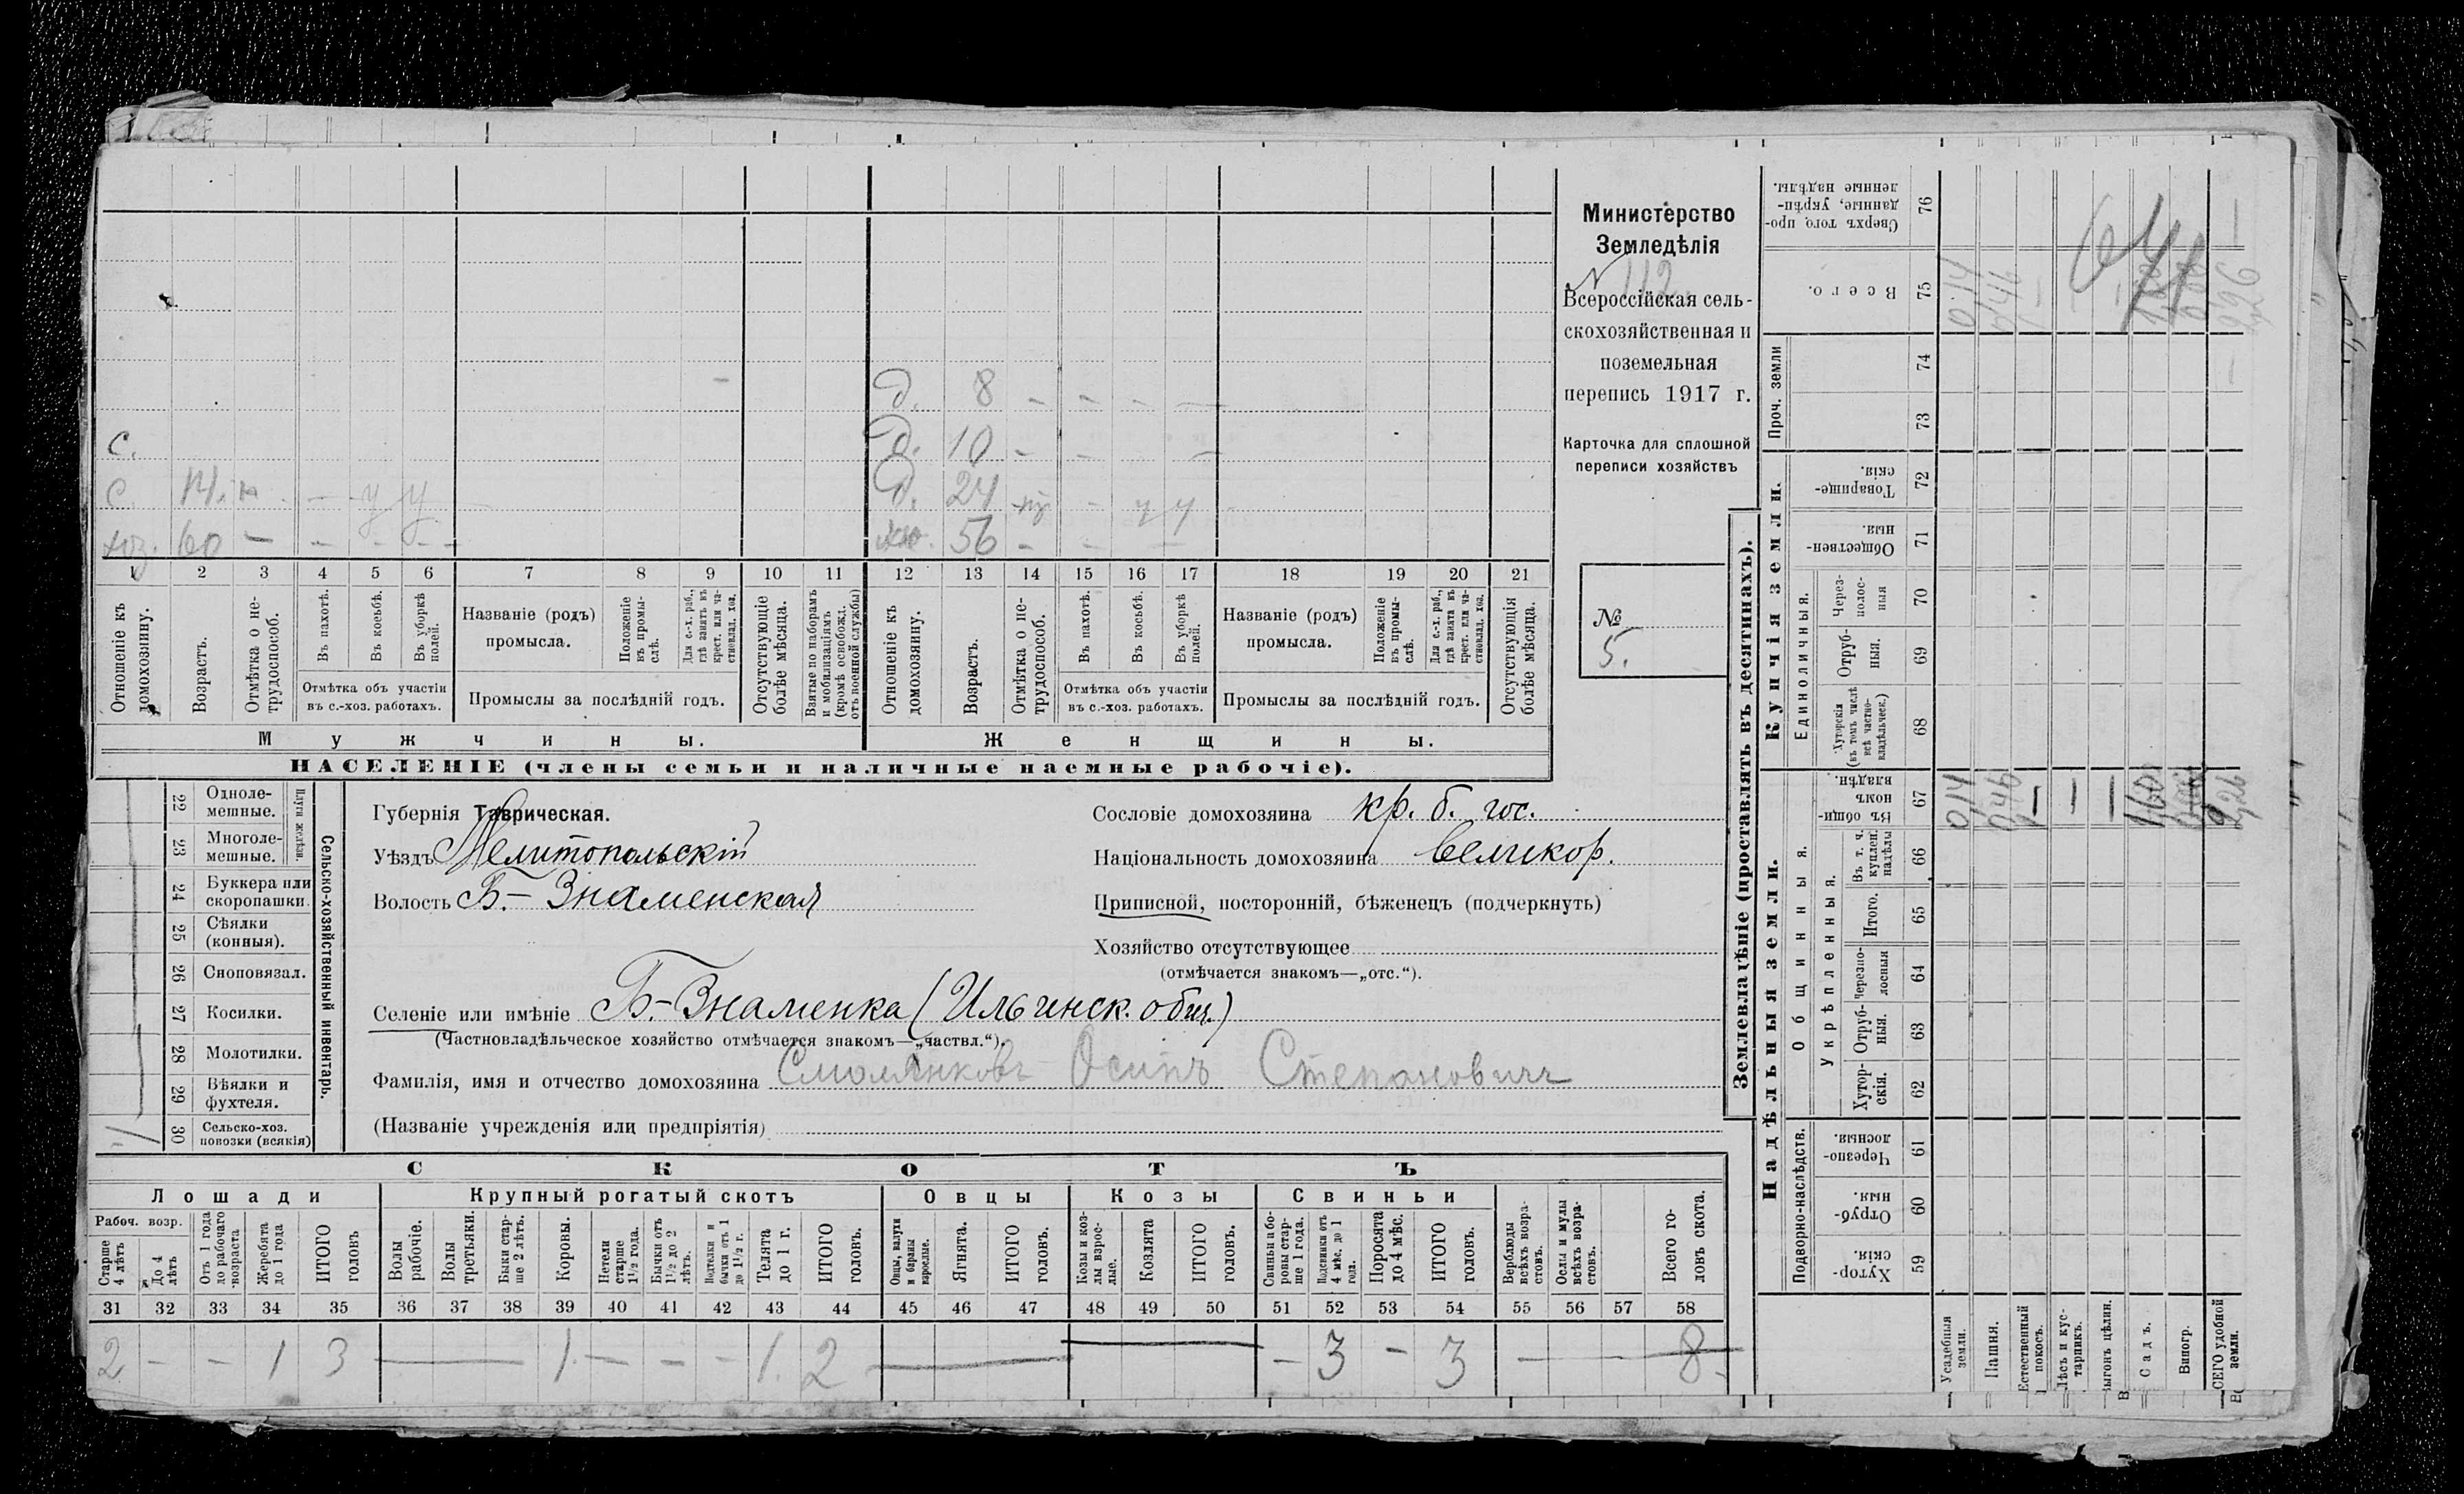 Министерство
Земледѣлія
N 112.
Всероссійская сель-
скохозяйственная и
поземельная
перепись 1917 г.
Карточка для сплошной
переписи хозяйствъ
№
5.
д. 8 - - - -
с. д. 10 - - -
с. - у у д. 24 - у у
хоз. 60 - - - - 56 - - -
1 2 3 4 5 6 7 8 9 10 11 12 13 14 15 16 17 18 19 20 21
Отношеніе къ домохозяину.
Возрастъ.
Отмѣтка о не-трудоспособ.
Въ пахотѣ.
Въ косьбѣ.
Въ уборкѣ полей.
Отмѣтка объ участіи
въ с.-хоз. работахъ.
Названіе (родъ)
промысла.
Положеніе въ промы-слѣ.
Для с.-х. раб., гдѣ занятъ въ крест. или ча-стновлад. хоз.
Промыслы за послѣдній годъ.
Отсутствующіе болѣе мѣсяца.
Взятые по наборамъ и мобилизаціямъ (кромѣ освобожд. отъ военной службы)
Отношеніе къ домохозяину.
Возрастъ.
Отмѣтка о не-трудоспособ.
Въ пахотѣ.
Въ косьбѣ.
Въ уборкѣ полей.
Отмѣтка объ участіи
въ с.-хоз. работахъ.
Названіе (родъ)
промысла.
Положеніе въ промы-слѣ.
Для с.-х. раб., гдѣ занята въ крест. или ча-стновлад. хоз.
Промыслы за послѣдній годъ.
Отсутствующія болѣе мѣсяца.
Мужчины. Женщины.
НАСЕЛЕНІЕ (члены семьи и наличные наемные рабочіе).
22 Одноле-мешные.
23 Многоле-мешные.
Плуги желѣзн.
24 Буккера или скоропашки.
25 Сѣялки (конныя).
26 Сноповязал.
27 Косилки.
28 Молотилки.
29 Вѣялки и фухтеля.
30 Сельско-хоз. повозки (всякія)
1
Сельско-хозяйственный инвентарь.
Губернія Таврическая.
Уѣздъ Мелитопольскій
Волость Б.-Знаменская
Сословіе домохозяина кр. б. гос.
Національность домохозяина великор.
Приписной, посторонній, бѣженецъ (подчеркнуть)
Хозяйство отсутствующее
(отмѣчается знакомъ—„отс.“).
Селеніе или имѣніе Б.-Знаменка (Ильинск. общ.)
(Частновладѣльческое хозяйство отмѣчается знакомъ—„частвл.“).
Фамилія, имя и отчество домохозяина Смолянковъ Осипъ Степановичъ
(Названіе учрежденія или предпріятія)
СКОТЪ
Лошади Крупный рогатый скотъ Овцы Козы Свиньи
Рабоч. возр.
Старше 4 лѣтъ
До 4 лѣтъ
Отъ 1 года до рабочаго возраста
Жеребята до 1 года
ИТОГО головъ
Волы рабочіе.
Волы третьяки.
Быки стар-ше 2 лѣтъ.
Коровы.
Нетели старше 1½ года.
Бычки отъ 1½ до 2 лѣтъ.
Подтелки и бычки отъ 1 до 1½ г.
Телята до 1 г.
ИТОГО головъ.
Овцы, валухи и бараны взрослые.
Ягнята.
ИТОГО головъ.
Козы и коз-лы взрос-лые.
Козлята
ИТОГО головъ.
Свиньи и бо-ровы стар-ше 1 года.
Подсвинки отъ 4 мѣс. до 1 года.
Поросята до 4 мѣс.
ИТОГО головъ.
Верблюды всѣхъ возра-стовъ.
Ослы и мулы всѣхъ возра-стовъ.
Всего го-ловъ скота.
31 32 33 34 35 36 37 38 39 40 41 42 43 44 45 46 47 48 49 50 51 52 53 54 55 56 57 58
2 - - 1 3 — 1. - - - 1. 2 — — - 3 - 3 — 8.
Землевладѣніе (проставлять въ десятинахъ).
Купчія земли.
Надѣльныя земли.
Сверхъ того, про-данные, укрѣп-ленные надѣлы. 76
Всего. 75
Проч. земли 74 73
Товарище-скія. 72
Обществен-ныя. 71
Единоличныя.
Через-полос-ныя 70
Отруб-ныя. 69
Хуторскія (въ томъ числѣ всѣ частно-владѣльческ.) 68
Общинныя.
Въ общи-номъ владѣн. 67
Укрѣпленныя.
Въ т. ч. куплен. надѣлы 66
Итого. 65
Черезпо-лосныя 64
Отруб-ныя. 63
Хутор-скія. 62
Подворно-наслѣдств.
Черезпо-лосныя. 61
Отруб-ныя. 60
Хутор-скія. 59
Усадебныя земли.
Пашня.
Естественный покосъ.
Лѣсъ и кус-тарникъ.
Выгонъ цѣлин.
Садъ.
Виногр.
ВСЕГО удобной земли.
014